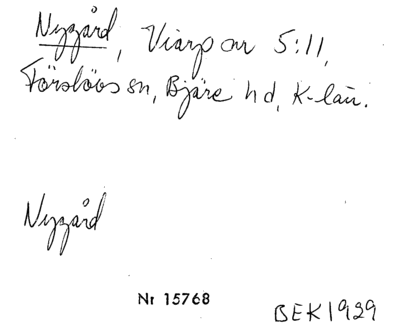 Nygård, Viarp nr 5:11,
Förslövs sn, Bjäre hd, K-län.
Nygård
Nr 15768
BEK 1929